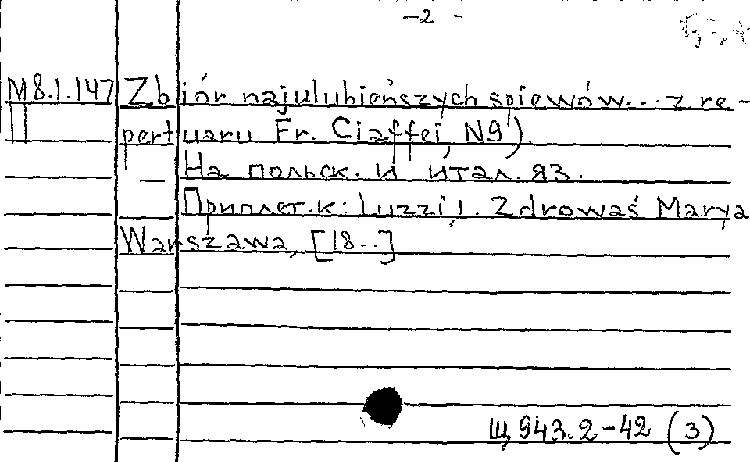 -2-
М8.1.147 Zbiór najulubieńszych śpiewów... z re-
II pertuaru Fr. Ciaffei, N9)
На польск. и итал. яз.
Приплет. к: Luzzi, I. Zdrowaś Marya
Warszawa, [18..]
Щ 943.2-42 (3)